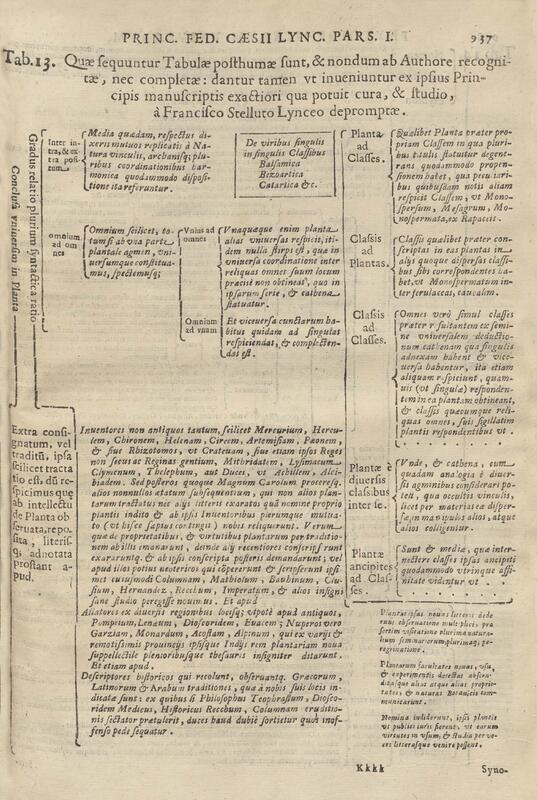 PRINC. FED. CÆSII LYNC. PARS. I. 937
Tab.13. Quæ sequuntur Tabulæ posthumæ sunt, & nondum ab Authore recogni-
tæ, nec completæ: dantur tamen vt inveniuntur ex ipsius Prin-
cipis manuscriptis exactiori qua potuit cura, & studio,
à Francisco Stelluto Lynceo depromptæ.
Conclusa vniuersim in Planta
Gradus, relatio plurium syntactica ratio
Inter in-
tra, & ex
tra posi-
tum
Media quædam, respectus di-
xeris mutuos replicatis à Na-
tura vinculis, archanisq; plu-
ribus coordinationibus har-
monica quodammodo disposi-
tione ita referuntur.
De viribus singulis
in singulis Classibus
Balsamica
Bezoartica
Catartica &c.
omnium
ad om
nes
Omnium scilicet, to-
tum si ab vna parte
plantale agmen, vni-
uersumque constitua-
mus, spectemusq;
Vnius ad
omnes
Vnaquæque enim planta
alias vniuersas respicit, iti-
dem nulla stirps est, quæ in
vniuersa coordinatione inter
reliquas omnes suum locum
præcisè non obtineat, quo in
ipsarum serie, & cathena
statuatur.
Omnium
ad vnam
Et viceversa cunctarum ha-
bitus quidam ad singulas
respiciendas, & complecten-
das est.
Planta
ad
Classes.
Qualibet Planta præter pro-
priam Classem in qua pluri-
bus titulis statuitur degene-
rans quodammodo propen-
sionem habet, qua peculiari-
bus quibusdam notis aliam
respicit Classem, vt Mono-
spersum, Mesagrum, Mo-
nospermata, ex Rapaceis.
Classis
ad
Plantas.
Classis qualibet præter con-
scriptas in ea plantas in
alijs quoque dispersas classi-
bus sibi correspondentes ha-
bet, vt Monospermatum in-
ter ferulaceas, caucalim.
Classis
ad
Classes.
Omnes verò simul classes
præter resultantem ex semi-
ne vniuersalem deductio-
num cathenam qua singulis
adnexam habent & vice-
uersa habentur, ita etiam
aliquam respiciunt, quam-
uis (vt singulæ) responden-
tem in ea plantam obtineant,
& classis quæcumque reli-
quas omnes, suis sigillatim
plantis respondentibus vt .
Plantæ è
diuersis
classibus
inter se.
Vnde, & cathena, cum
quadam analogia è diuer-
sis agminibus considerari po-
test, qua occultis vinculis,
licet per materiales disper-
sa in manipulos alios, atque
alios colligentur.
Plantæ
ancipites
ad Clas-
ses.
Sunt & mediæ, quæ inter-
nectere classes ipsas ancipiti
quodammodo vtrinque affi-
nitate videntur vt . . .
Extra consi-
gnatum, vel
traditũ, ipsa
scilicet tracta
tio est, dũ re-
spicimus quę
ab intellectu
de Planta ob-
seruata, repo-
sita, literisq;
adnotata
prostant a-
pud.
Inuentores non antiquos tantum, scilicet Mercurium, Hercu-
lem, Chironem, Helenam, Circem, Artemisiam, Pæonem,
& siue Rhizotomos, vt Crateuam, siue etiam ipsos Reges
non secus ac Reginas gentium, Mithridatem, Lysimacum
Clymenum, Thelephum, aut Duces, vt Achillem, Alci-
biadem. Sed posteros quoque Magnum Carolum proceresq.
alios nonnullos ætatum subsequentium, qui non alios plan-
tarum tractatus nec alijs litteris exaratos quã nomine proprio
plantis indito & ab ipsis Inuentoribus plerumque mutua-
to (vt hisce sæptus contingit) nobis reliquerunt. Verum
quæ de proprietatibus, & virtutibus plantarum per traditio-
nem ab illis manarunt, deinde alij recentiores conscripserunt
exararuntq. & ab ipsis conscripta posteris demandarunt; vel
apud illos potius neotericos qui cœperunt & scripserunt ipsi-
met cuiusmodi Columnam, Mathiolum, Bauhinum, Clu-
sium, Hernandez, Recchum, Imperatum, & alios insigni
sanè studio peregisse nouimus. Et apud
Allatores ex diuersis regionibus ipsasq; vtpotè apud antiquos,
Pompeium, Lenæum, Dioscoridem, Euacem; Nuperos vero
Garziam, Monardum, Acostam, Alpinum, qui ex varijs &
remotissimis Prouincijs ipsisque Indijs rem plantariam noua
suppellectile plenioribusque thesauris insigniter ditarunt.
Et etiam apud.
Descriptores historicos qui recolunt, obseruantq. Græcorum,
Latinorum & Arabum traditiones, quæ à nobis suis locis in-
dicatæ sunt: ex quibus si Philosophus Teophrastum, Diosco-
ridem Medicus, Historicus Recchum, Columnam eruditio-
nis sectator prætulerit, duces haud dubiè sortietur quos inof-
fenso pede sequatur.
Plantas ipsas nouas litteris dede
runt obseruatione multiplici præ
sertim visitatione plurima natura-
lium seminariorum plurimaq; pe-
regrinatione.
Plantarum facultates nouas, vsu,
& experimentis detectas obserua-
tasque alias atque alias proprie-
tates, & naturas Botanicis com-
municarunt.
Nomina indiderunt, ipsis plantis
vt publici iuris fierent, vt earum
virtutes in vsum, & studia per vo-
ces litterasque venire possent.
Kkkk Syno-